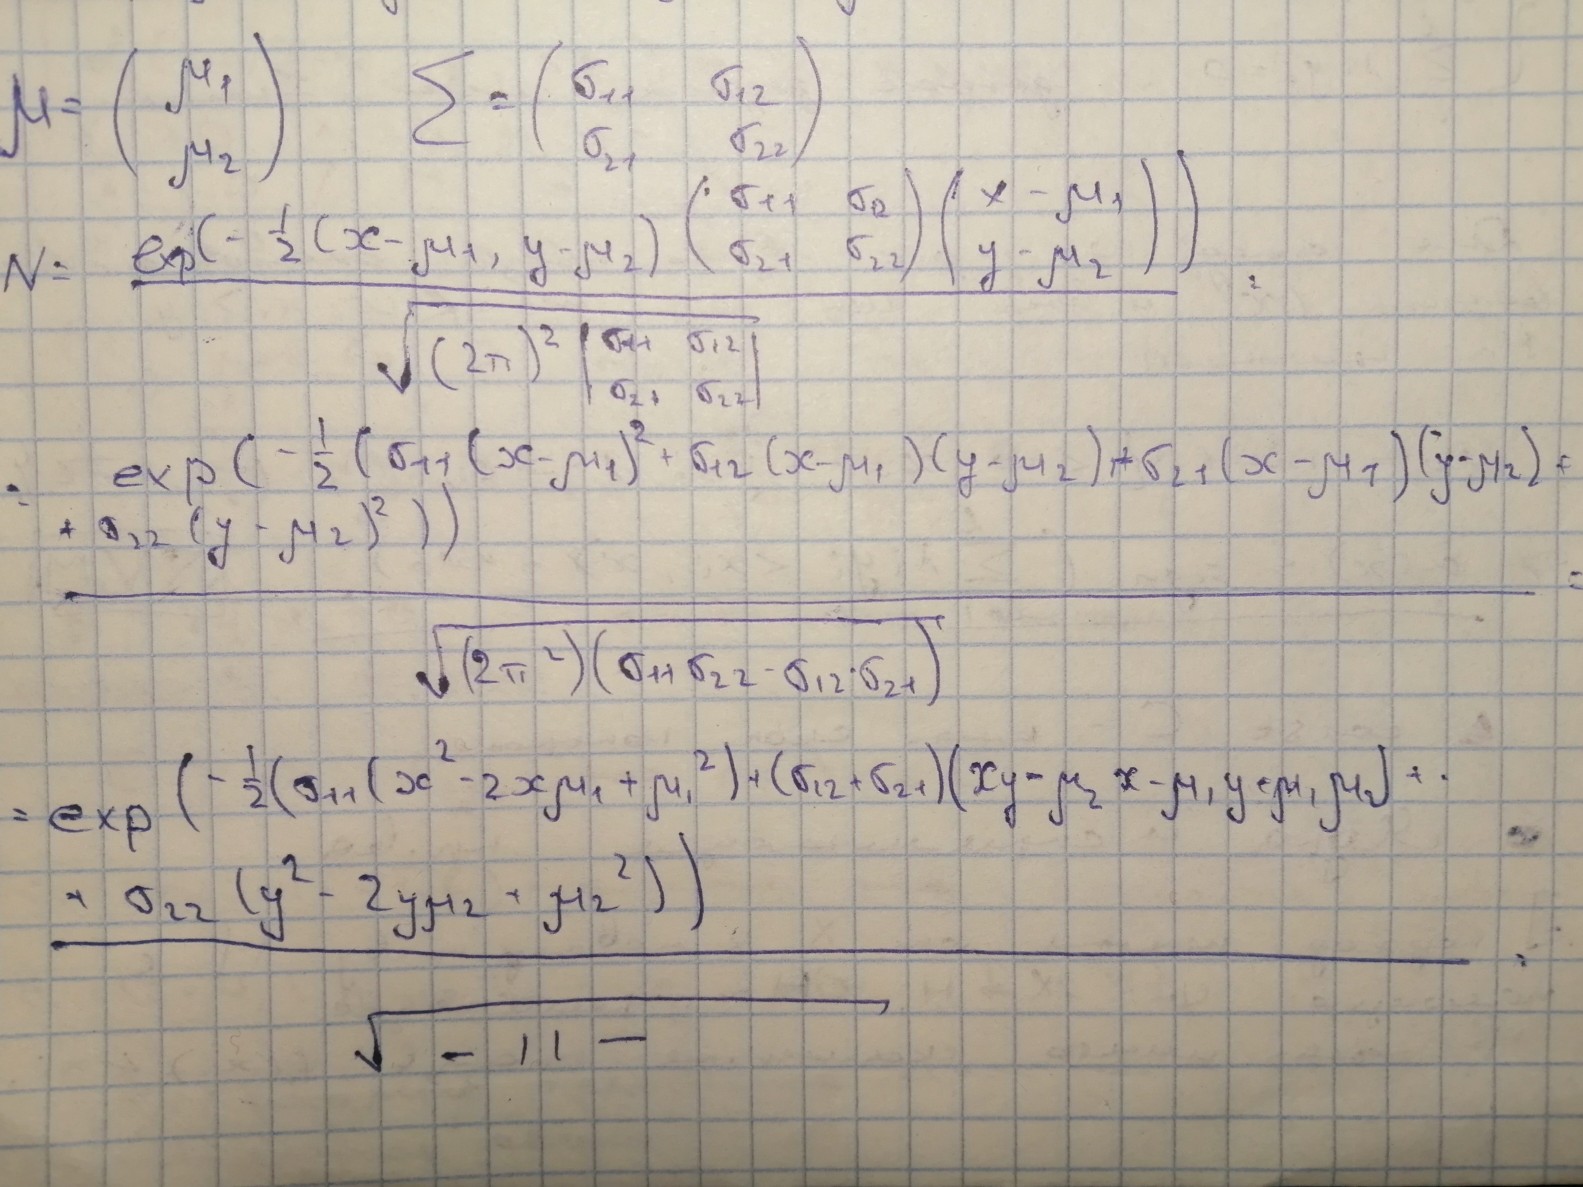 μ = ( μ1 μ2 ) Σ = ( σ11 σ12 σ21 σ22 )
N = exp(-1/2 (x-μ1, y-μ2) ( σ11 σ12 σ21 σ22 ) ( x-μ1 y-μ2 )) =
√((2π)² | σ11 σ12 σ21 σ22 |)
= exp(-1/2 (σ11 (x-μ1)² + σ12 (x-μ1)(y-μ2) + σ21 (x-μ1)(y-μ2) +
+ σ22 (y-μ2)² )) =
√((2π²)(σ11 σ22 - σ12·σ21))
= exp(-1/2 (σ11 (x² - 2xμ1 + μ1²) + (σ12+σ21)(xy - μ2 x - μ1 y + μ1 μ2) +
+ σ22 (y² - 2yμ2 + μ2²))) =
√ - 11 -